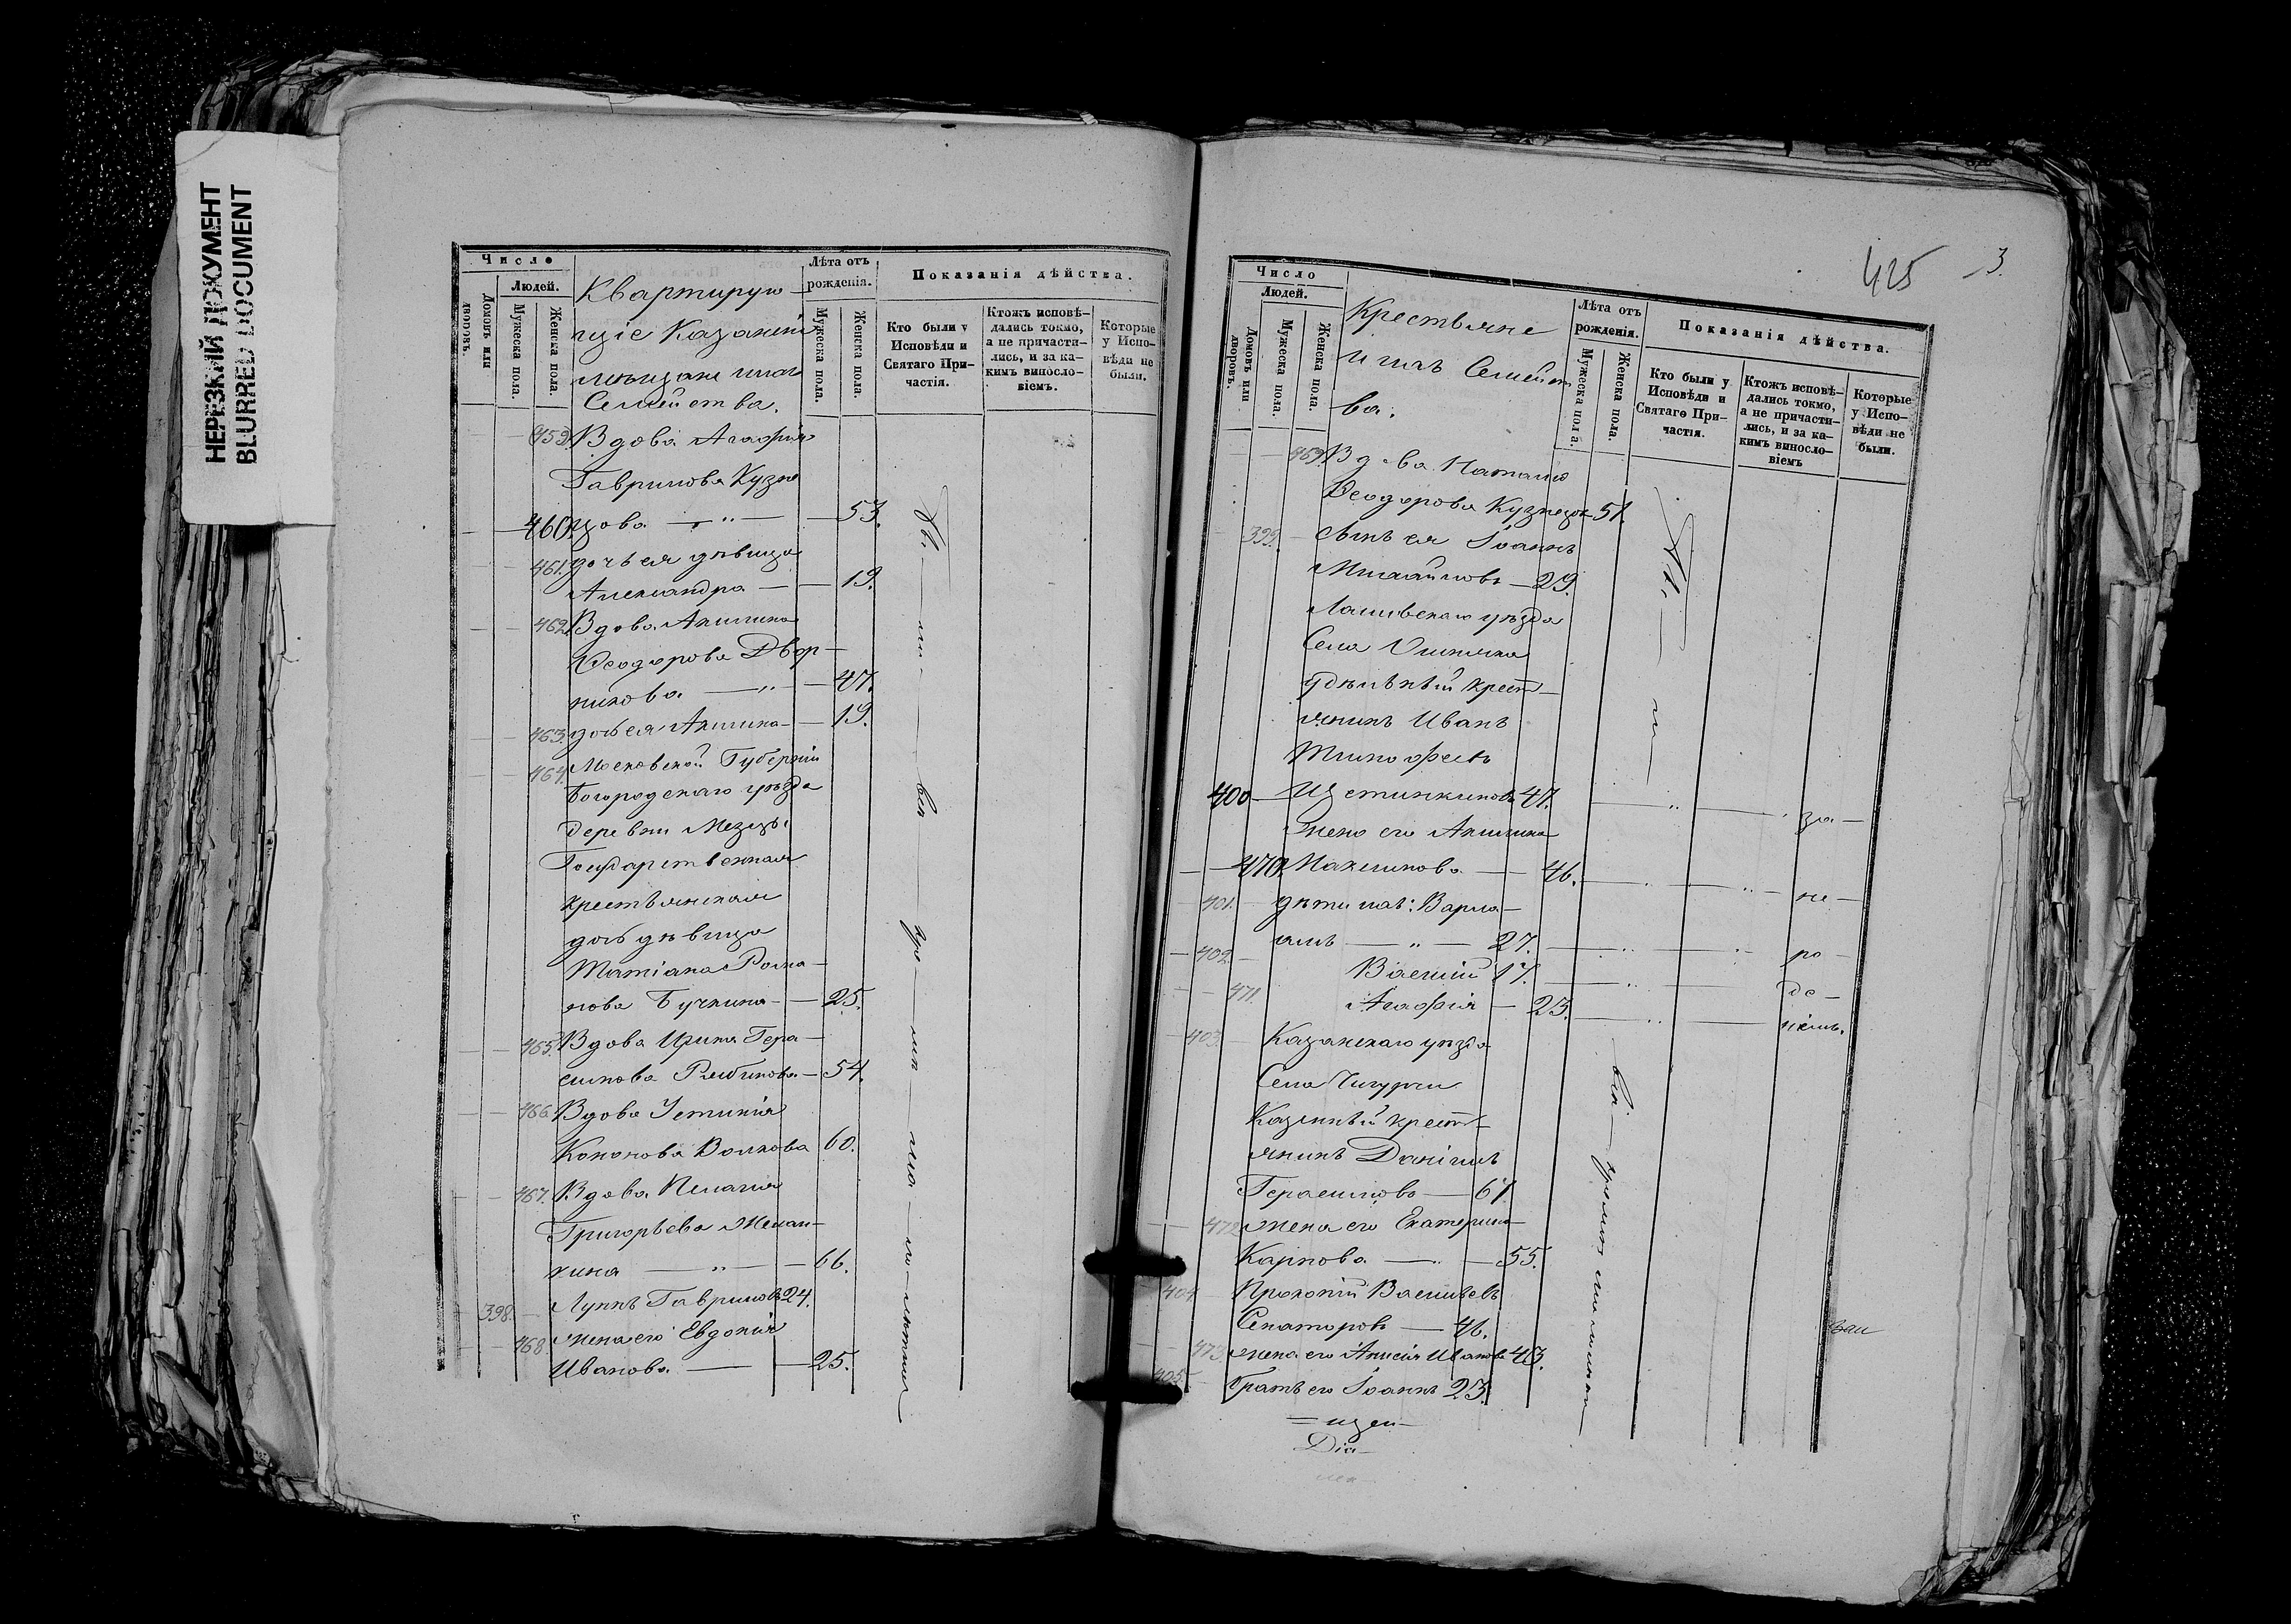 НЕРЕЗКИЙ ДОКУМЕНТ
BLURRED DOCUMENT
Число
Людей.
Домовъ или дворовъ.
Мужеска пола.
Женска пола.
Квартирую
щіе Казанскіе
мѣщане и ихъ
Семейства.
Лѣта отъ рожденія.
Мужеска пола.
Женска пола.
Показанія дѣйства.
Кто были у Исповѣди и Святаго Причастія.
Ктожъ исповѣ-
дались токмо,
а не причасти-
лись, и за ка-
кимъ виносло-
віемъ.
Которые
у Испо-
вѣди не
были.
459. Вдова Агафія
Гаврилова Кузне
460. цова — „ — 53.
461. дочь ея дѣвица
Александра — 19.
462. Вдова Акилина
Ѳеодорова Двор-
никова — „ — 47.
463. дочь ея Акилина — 19.
464. Московской Губерніи
Богородскаго уѣзда
деревни
Государственная
крестьянская
дочь дѣвица
Татіана Рома-
нова Бучкина — 25.
465. Вдова Ирина Гера-
симова Рябинова — 54.
466. Вдова Устинія
Кононова Волкова 60.
467. Вдова Пелагія
Григорьева Мелан-
кина — „ — 66.
398. Лукинъ Гавриловъ 24.
468. жена его Евдокія
Иванова — 25.
425
3.
Число
Людей.
Домовъ или дворовъ.
Мужеска пола.
Женска пола.
Крестьяне
и ихъ Семейст
ва.
Лѣта отъ
рожденія.
Мужеска пола.
Женска пола.
Показанія дѣйства.
Кто были у
Исповѣди и
Святаго При-
частія.
Ктожъ исповѣ-
дались токмо,
а не причасти-
лись, и за ка-
кимъ виносло-
віемъ
Которые
у Испо-
вѣди не
были.
469. Вдова Наталія
Ѳеодорова Кузнецов 51.
399. сынъ ея Іоаннъ
Михайловъ — 29.
Лаишевскаго уѣзда
Села
удѣльный крест-
янинъ Иванъ
Тимофеевъ
400 — Щетинкиновъ 47. — за —
жена его Акилина
470 Максимова — 46. — не —
401. — дѣти ихъ: Варла-
амъ — „ — 27. — ра —
402. — Василій 17. — дѣ —
471. Агафія — 23. — ніемъ.
403. Казанскаго уѣзда
Села
Казенный крест-
янинъ Даніилъ
Герасимовъ — 61
472 жена его Екатерина
Карпова — 55.
404 Прокопій Васильевъ
Сенаторовъ — 46.
473. жена его Анисія Иванова 43.
405. братъ его Іоаннъ 23.
= щен —
Діа —